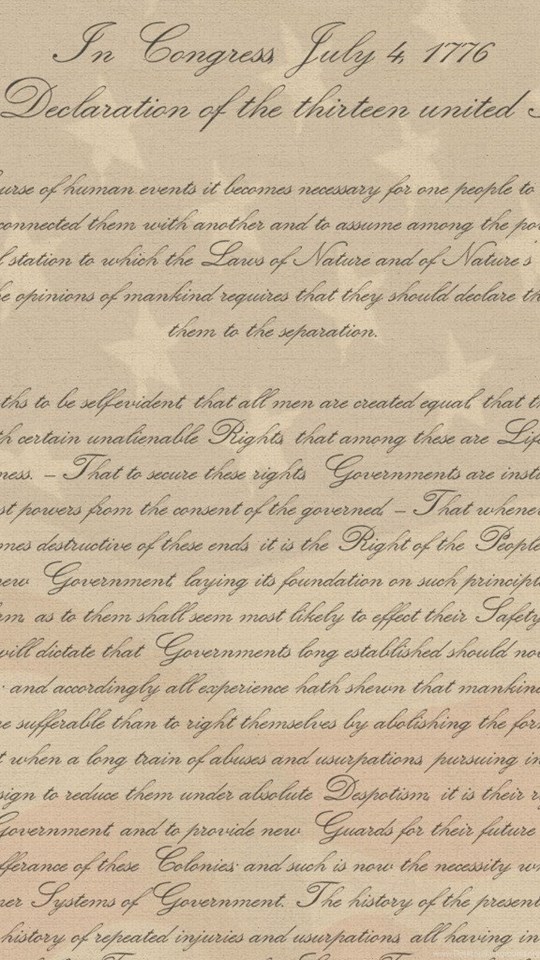 In Congress July 4, 1776
Declaration of the thirteen united
urse of human events it becomes necessary for one people to
connected them with another and to assume among the po
l station to which the Laws of Nature and of Nature's
e opinions of mankind requires that they should declare th
them to the separation.
ths to be selfevident, that all men are created equal, that th
h certain unalienable Rights, that among these are Life
ness. – That to secure these rights, Governments are insti
st powers from the consent of the governed, – That whenev
mes destructive of these ends, it is the Right of the People
new Government, laying its foundation on such principl
rm, as to them shall seem most likely to effect their Safety
will dictate that Governments long established should no
: and accordingly all experience hath shewn that mankin
re sufferable than to right themselves by abolishing the for
t when a long train of abuses and usurpations, pursuing in
sign to reduce them under absolute Despotism, it is their r
Government, and to provide new Guards for their future
fferance of these Colonies: and such is now the necessity w
mer Systems of Government. The history of the present
history of repeated injuries and usurpations, all having in